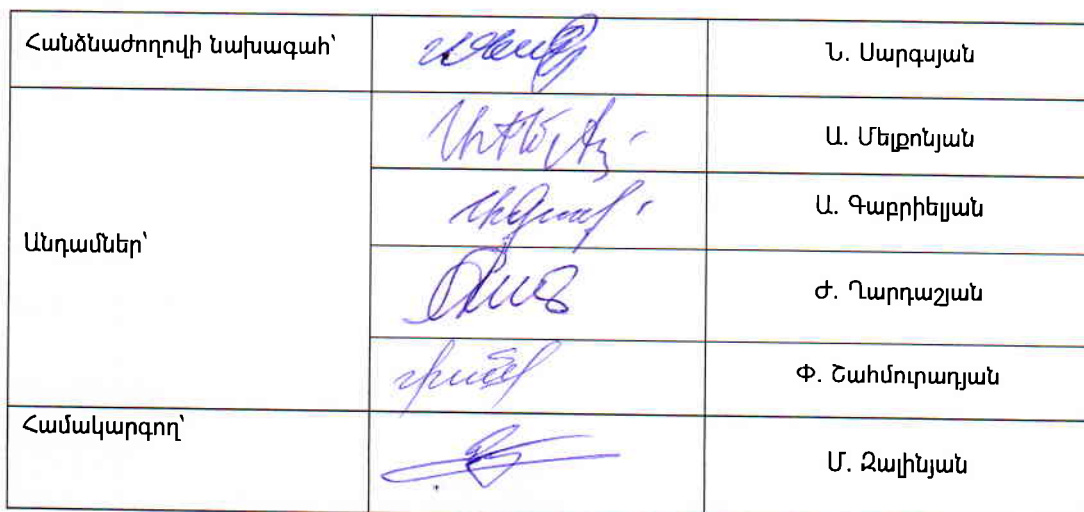 Հանձնաժողովի նախագահ՝
Ն. Սարգսյան
Ա. Մելքոնյան
Ա. Գաբրիելյան
Անդամներ՝
Ժ. Ղարդաշյան
Փ. Շահմուրադյան
Համակարգող՝
Մ. Զալինյան